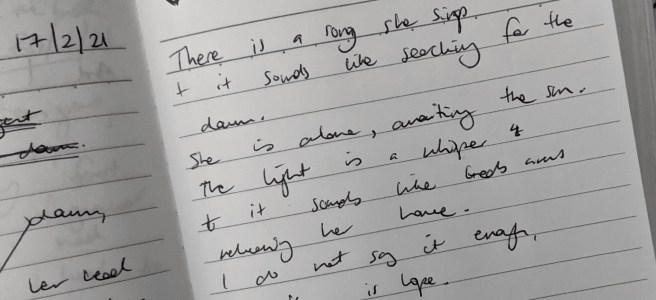 17/2/21
dawn,
her head
There is a song she sings
+ it sounds like searching for the
dawn.
She is alone, awaiting the sun.
The light is a whisper
+ it sounds like birds
her home.
I do not say it enough,
is hope.